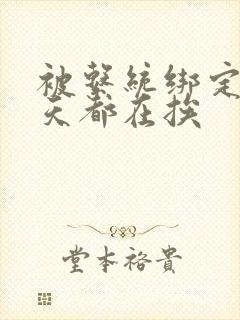 被繫統綁定
天都在挨
堂本裕貴